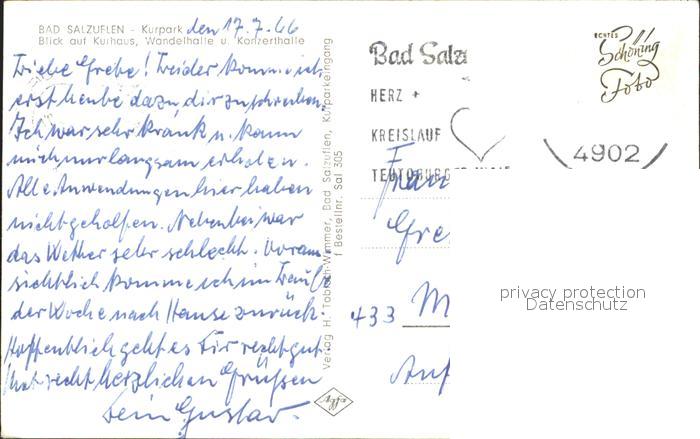 BAD SALZUFLEN - Kurpark den 17.7.66
Blick auf Kurhaus, Wandelhalle u. Konzerthalle
Liebe Grete! Leider komme ich
erst heute dazu, dir zu schreiben.
Ich war sehr krank u. kann
mich nur langsam erholen.
Alle Anwendungen hier haben
nicht geholfen. Nebenbei war
das Wetter sehr schlecht. Voraus-
sichtlich komme ich im Laufe
der Woche nach Hause zurück.
Hoffentlich geht es Dir recht gut.
Mit recht herzlichen Grüßen
Dein Gustav.
Verlag H. Tobisch-Wimmer, Bad Salzuflen, Kurparkeingang
f Bestellnr. Sal 305
Agfa
ECHTES
Schöning
Foto
Bad Salz
HERZ +
KREISLAUF
TEUTOBURGER
4902
Frau
Gre
433 M
Auf
privacy protection
Datenschutz